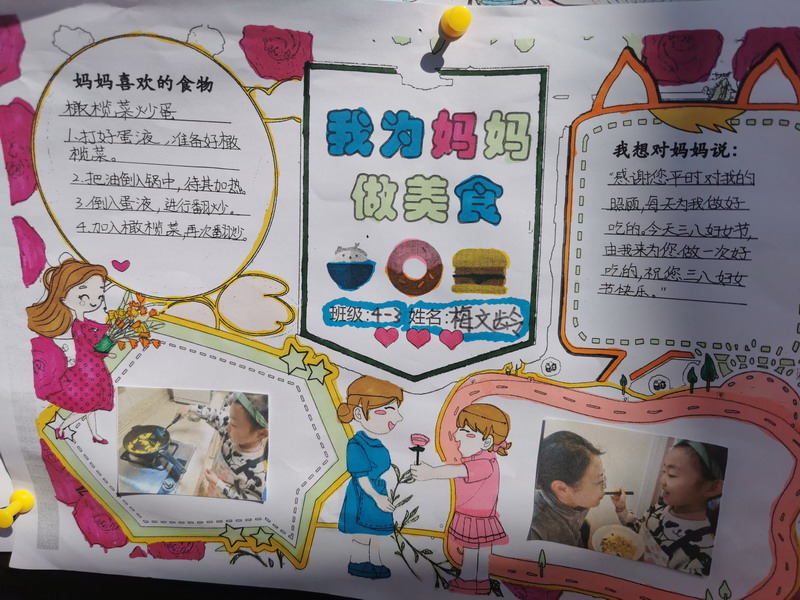 妈妈喜欢的食物
橄榄菜炒蛋
1.打好蛋液、准备好橄
榄菜。
2.把油倒入锅中,待其加热。
3.倒入蛋液,进行翻炒。
4.加入橄榄菜,再次翻炒。
我为妈妈
做美食
班级:4-3 姓名:梅文龄
我想对妈妈说:
"感谢您平时对我的
照顾,每天为我做好
吃的,今天三八妇女节,
由我来为您做一次好
吃的,祝您三八妇女
节快乐。"